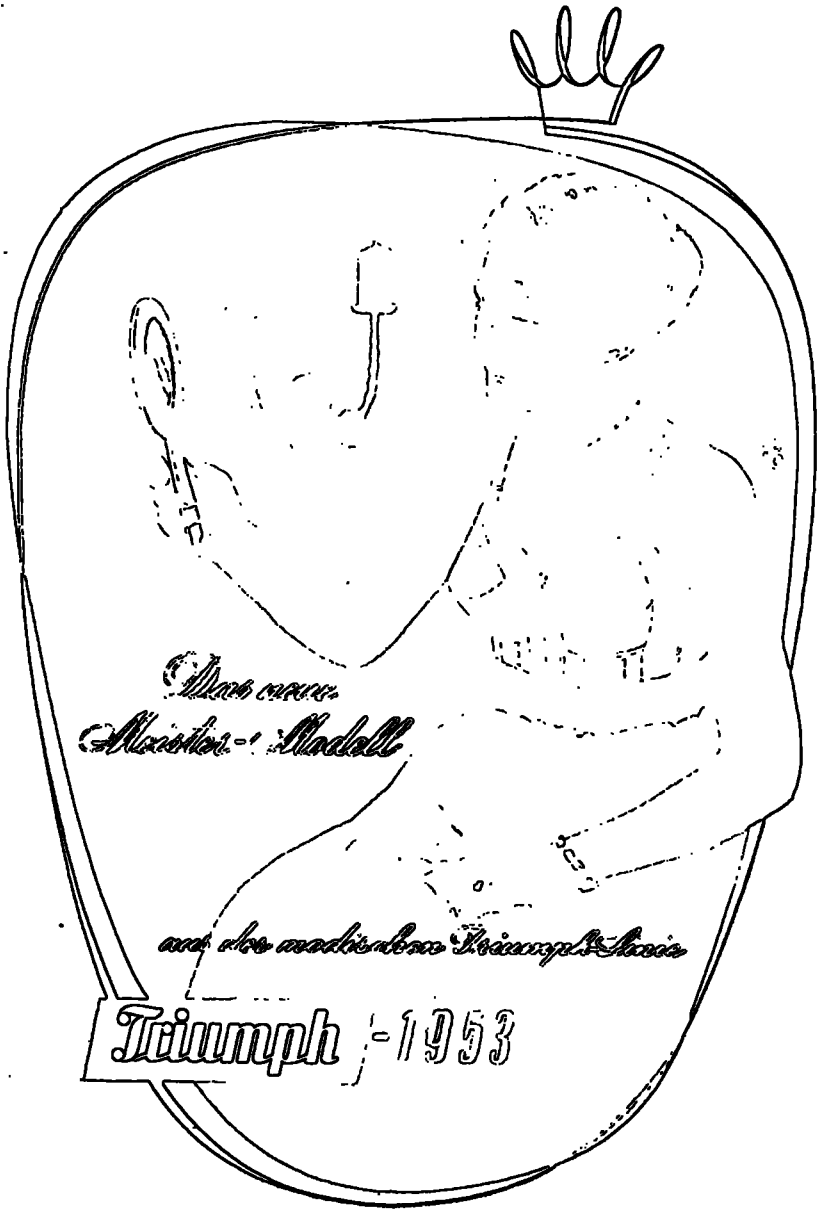 Das neue
Meister-Modell
aus der modischen Triumph-Linie
Triumph-1953